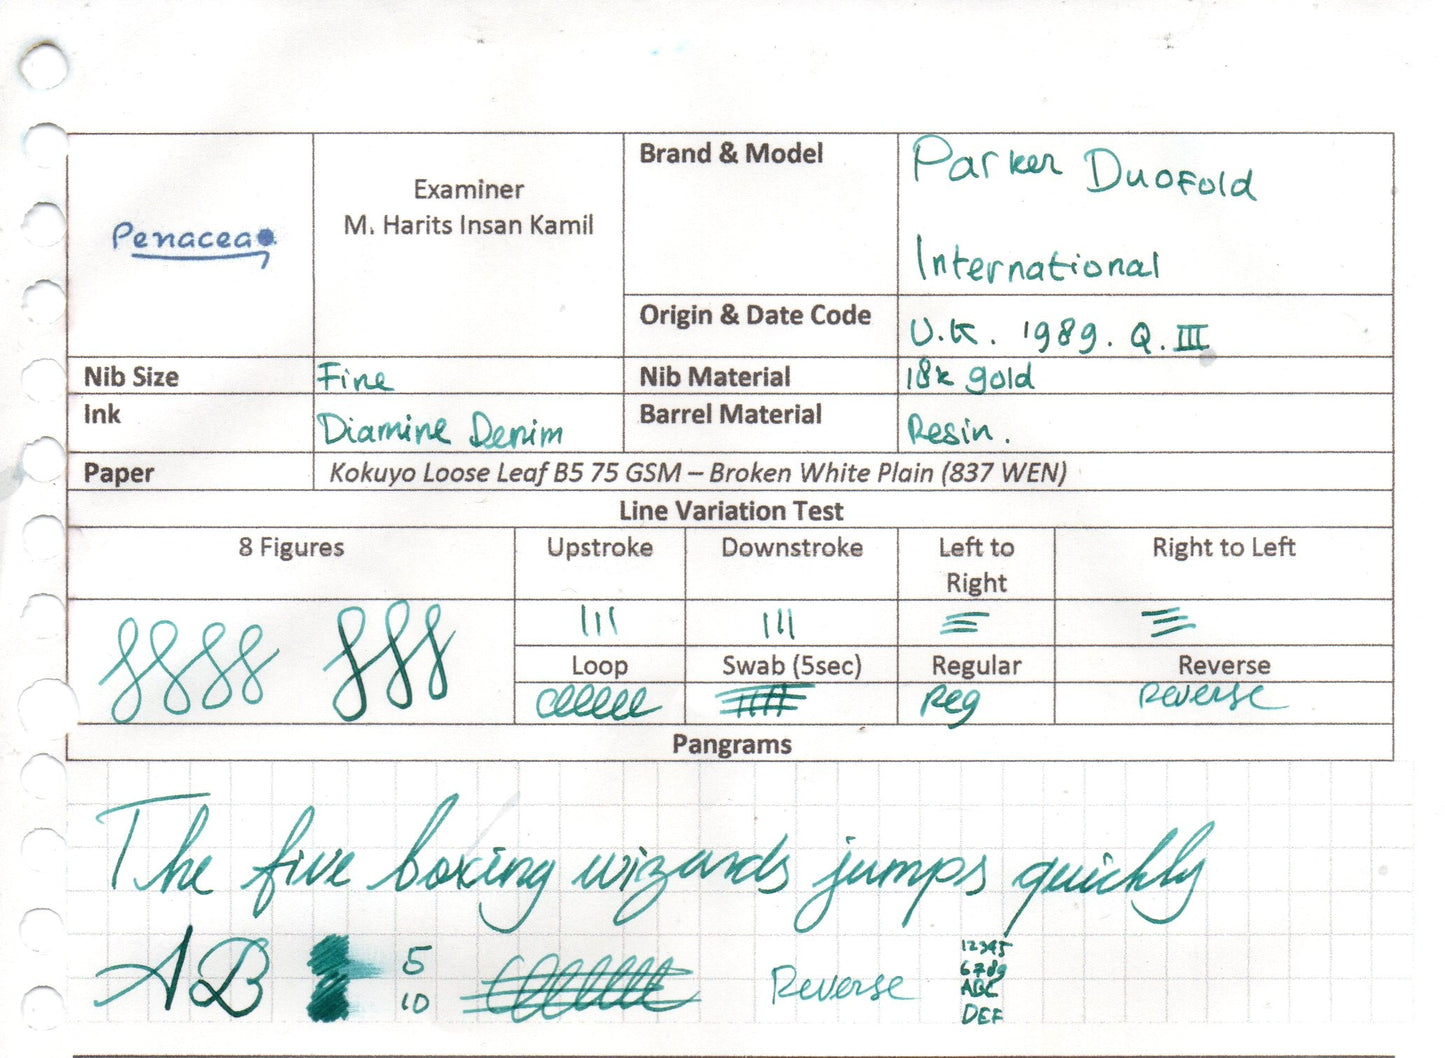 Penacea
Examiner
M. Harits Insan Kamil
Brand & Model
Parker Duofold
International
Origin & Date Code
U.K. 1989. Q.III
Nib Size
Fine
Nib Material
18k gold
Ink
Diamine Denim
Barrel Material
Resin.
Paper
Kokuyo Loose Leaf B5 75 GSM – Broken White Plain (837 WEN)
Line Variation Test
8 Figures
Upstroke
Downstroke
Left to
Right
Right to Left
Loop
Swab (5sec)
Regular
Reverse
Reg
Reverse
Pangrams
The five boxing wizards jumps quickly
AB
5
10
Reverse
12345
6789
ABC
DEF